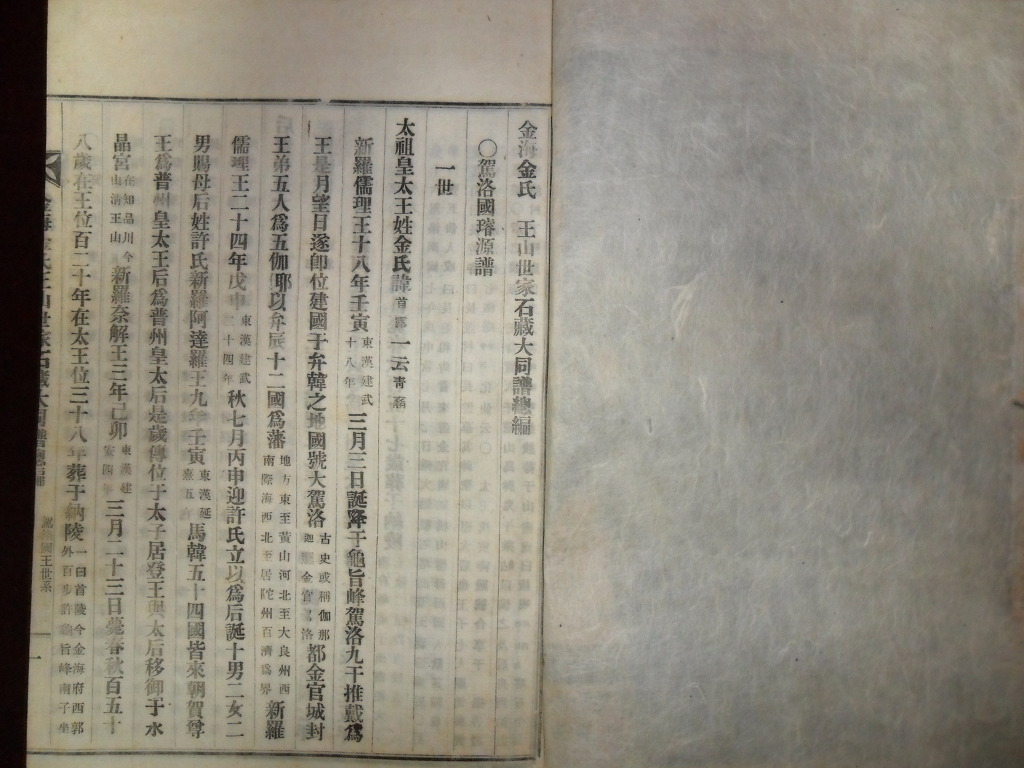 金海金氏 王山世家石藏大同譜總編
〇駕洛國璿源譜
一世
太祖皇太王姓金氏諱首露一云青裔
新羅儒理王十八年壬寅東漢建武十八年三月三日誕降于龜旨峰駕洛九干推戴爲
王是月望日遂卽位建國于弁韓之地國號大駕洛古史或稱伽那迦金官洛都金官城封
王弟五人爲五伽耶以弁辰十二國爲藩地方東至黃山河北至大良州西南際海西北至居陀州百濟爲界新羅
儒理王二十四年戊申東漢建武二十四年秋七月丙申迎許氏立以爲后誕十男二女二
男賜母后姓許氏新羅阿達羅王九年壬寅東漢延熹五年馬韓五十四國皆來朝賀尊
王爲普州皇太王后爲普州皇太后是歲傳位于太子居登王與太后移御于水
晶宮在知品川今山淸王山新羅奈解王三年己卯東漢建安四年三月二十三日薨春秋百五十
八歲在王位百二十年在太王位三十八年葬于納陵一曰首陵今金海府西郭外百步許龜旨峰南子坐
金海金氏王山世家石藏大同譜總編 駕洛國王世系 一